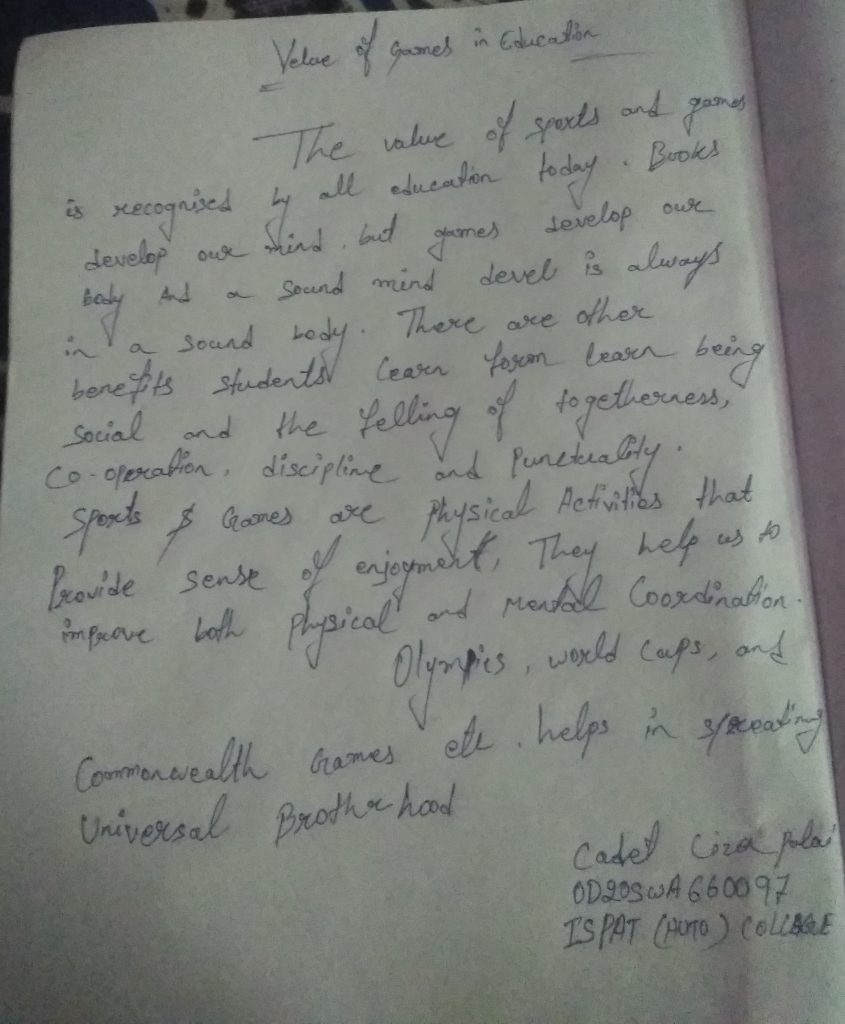 Velue of Games in Education
The value of sports and games
is recognised by all education today. Books
develop our mind. but games develop our
body And a sound mind devel is always
in a sound body. There are other
benefits students learn form learn being
social and the felling of togetherness,
Co-operation, discipline and Punctuality.
Sports & Games are Physical Activities that
Provide sense of enjoyment, They help us to
improve both physical and mental Coordination.
Olympics, world Cups, and
Commonwealth Games etc. helps in spreating
Universal Brotherhood
Cadet Liza
OD20SWA660097
ISPAT (AUTO) COLLEAGUE